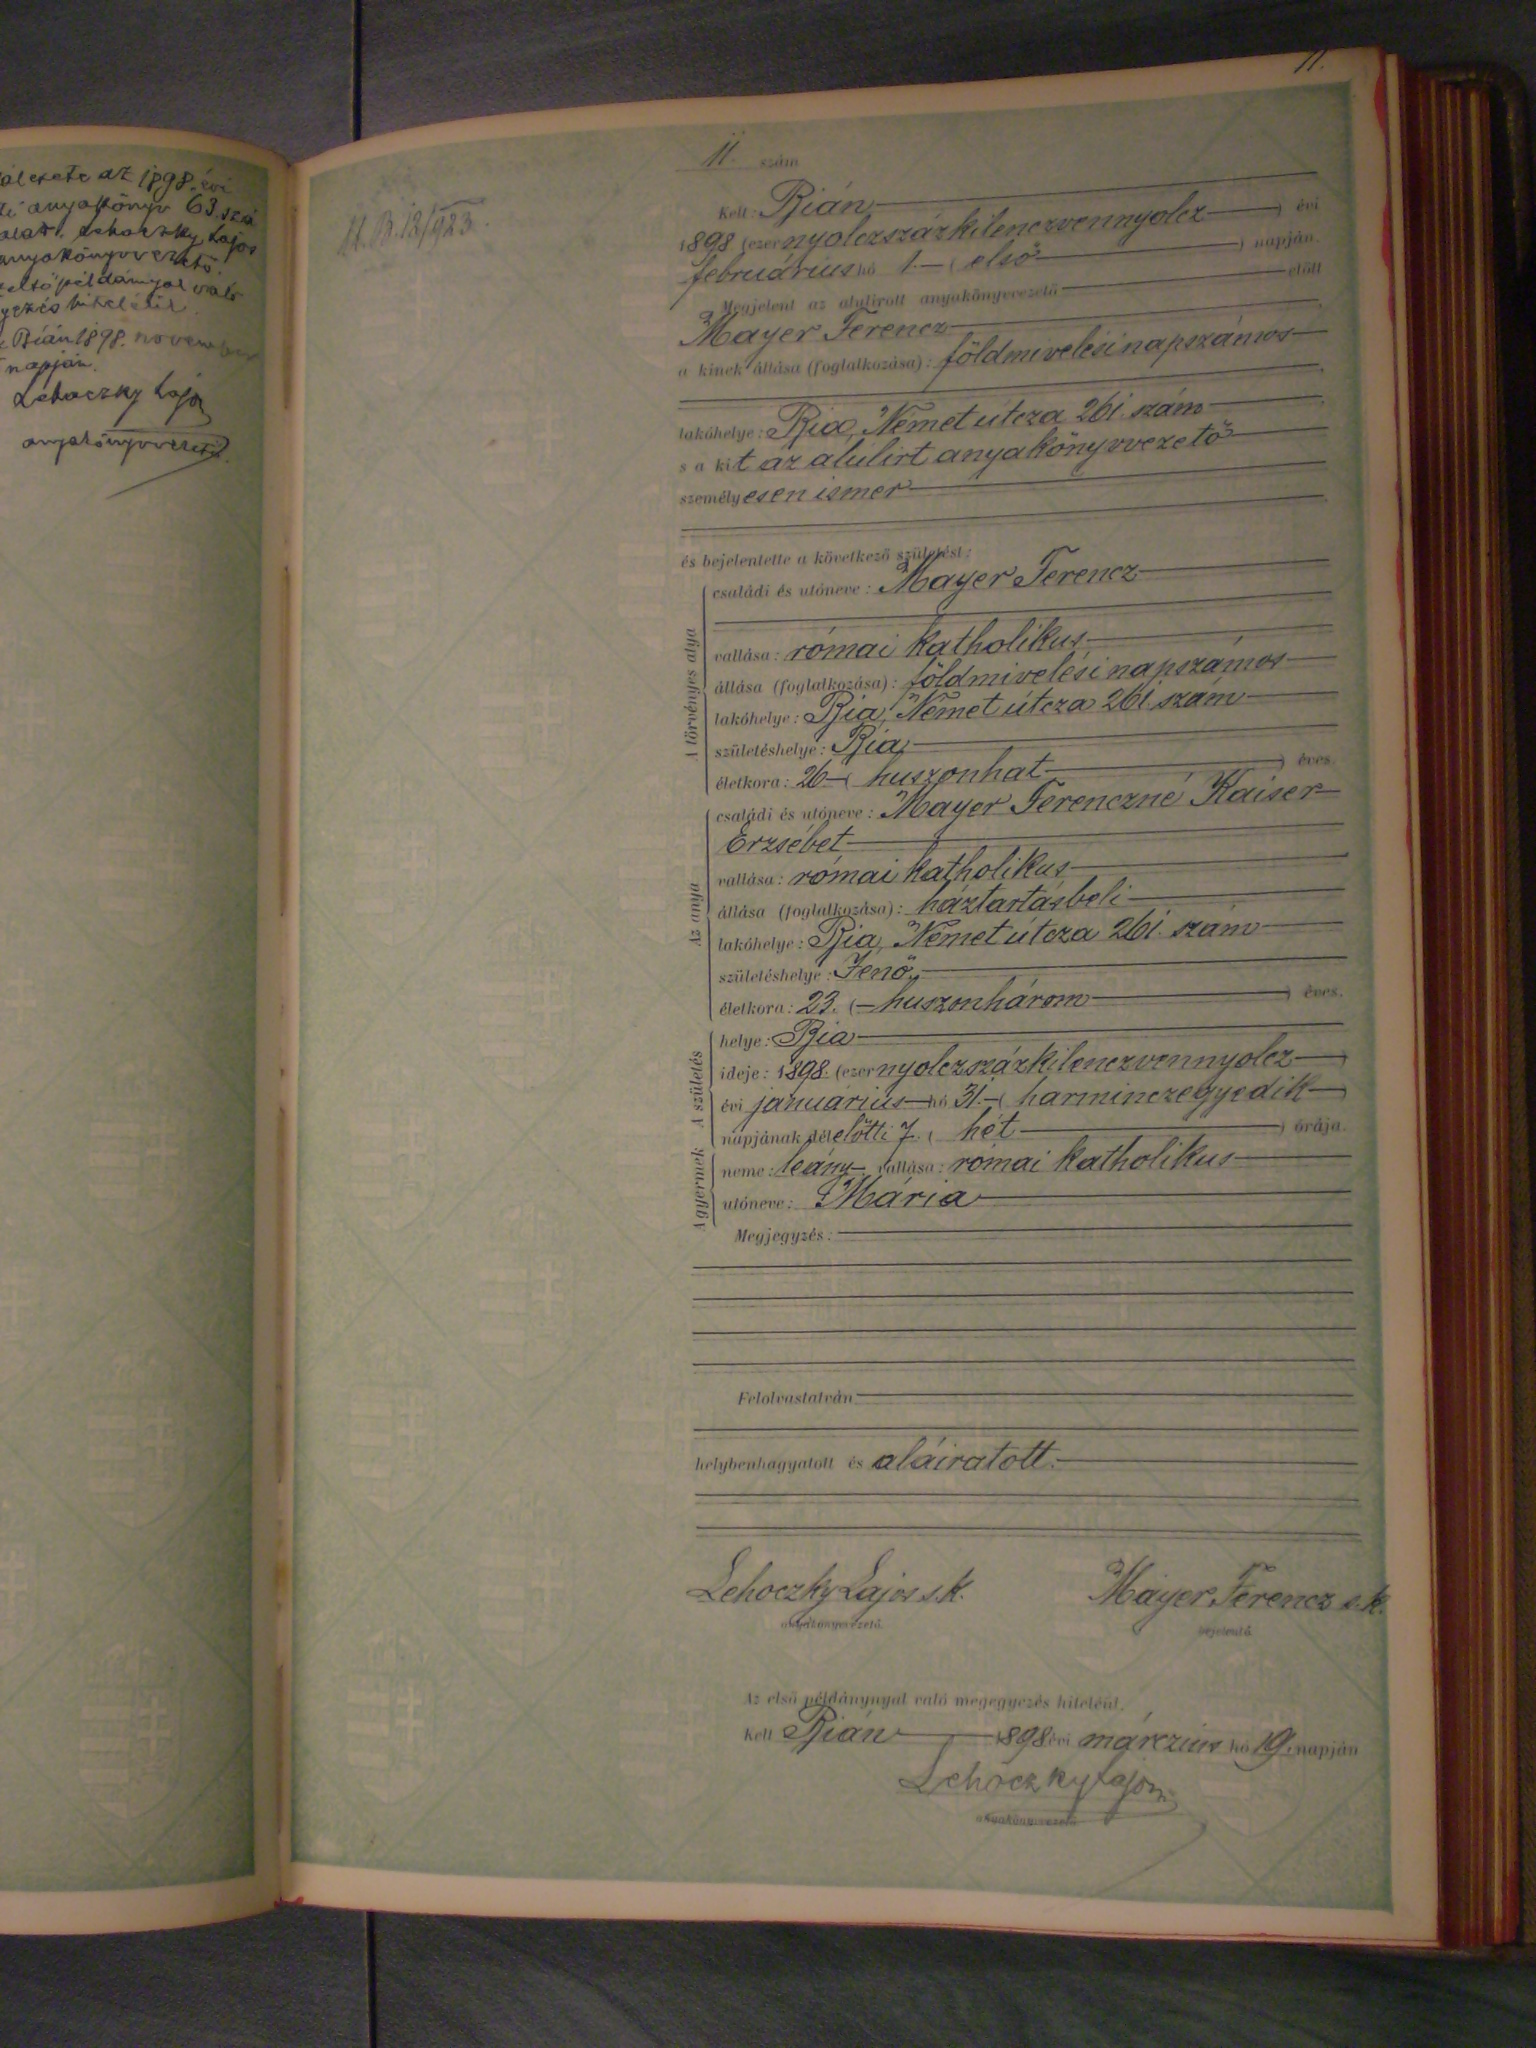 az 1898. évi
anyakönyv 63. szá
Lehoczky Lajos
anyakönyvvezető.
példánnyal való
hiteléül.
Bián 1898. november
napján.
Lehoczky Lajos
anyakönyvvezető.
11.
11. szám
Kelt: Bián
1898 (ezernyolczszázkilenczvennyolcz) évi
februárius hó 1. (első) napján.
Megjelent az alulírott anyakönyvvezető előtt
Mayer Ferencz
a kinek állása (foglalkozása): földmivelési napszámos
lakóhelye: Bia, Német útcza 261. szám
s a kit az alulirt anyakönyvvezető
személyesen ismer
és bejelentette a következő születést:
A törvényes atya
családi és utóneve: Mayer Ferencz
vallása: római katholikus
állása (foglalkozása): földmivelési napszámos
lakóhelye: Bia, Német útcza 261. szám
születéshelye: Bia,
életkora: 26 (huszonhat) éves.
Az anya
családi és utóneve: Mayer Ferenczné Kaiser
Erzsébet
vallása: római katholikus
állása (foglalkozása): háztartásbeli
lakóhelye: Bia, Német útcza 261. szám
születéshelye: Jenő,
életkora: 23. (huszonhárom) éves.
A születés
helye: Bia
ideje: 1898. (ezernyolczszázkilenczvennyolcz)
évi januárius hó 31. (harminczegyedik)
napjának délelőtti 7. (hét) órája.
A gyermek
neme: leány, vallása: római katholikus
utóneve: Mária
Megjegyzés:
Felolvastatván
helybenhagyatott és aláiratott.
Lehoczky Lajos s.k. Mayer Ferencz s.k.
anyakönyvvezető bejelentő
Az első példánynyal való megegyezés hiteléül.
Kelt Bián 1898 évi márczius hó 19. napján
Lehoczky Lajos
anyakönyvvezető